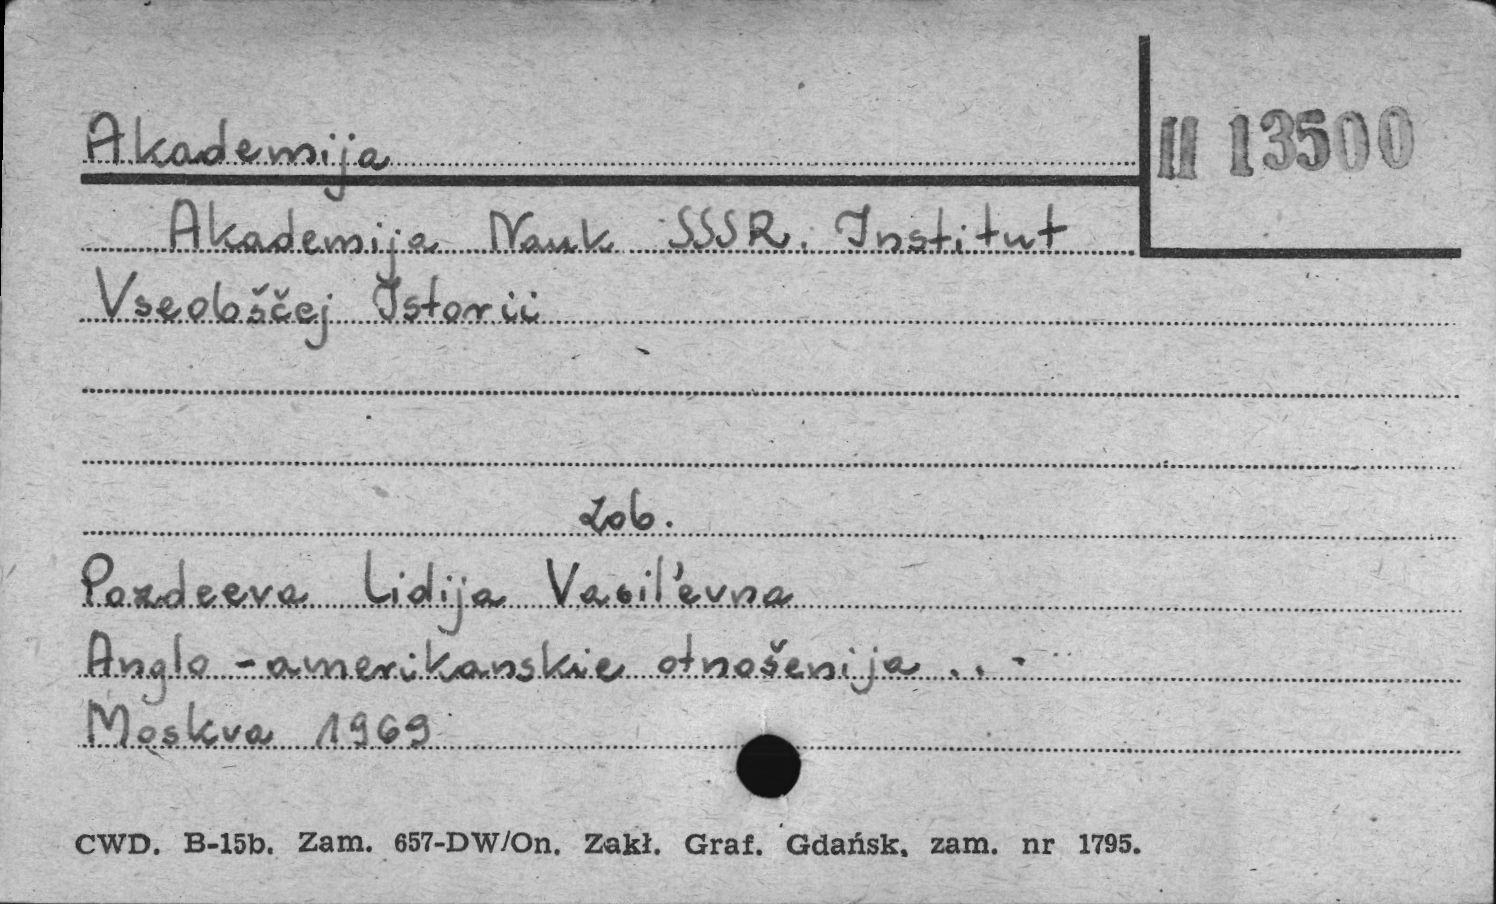 Akademija
II 13500
Akademija Nauk SSSR. Institut
Vseobščej Istorii
zob.
Pozdeeva Lidija Vasil'evna
Anglo-amerikanskie otnošenija ...
Moskva 1969
CWD. B-15b. Zam. 657-DW/On. Zakł. Graf. Gdańsk, zam. nr 1795.